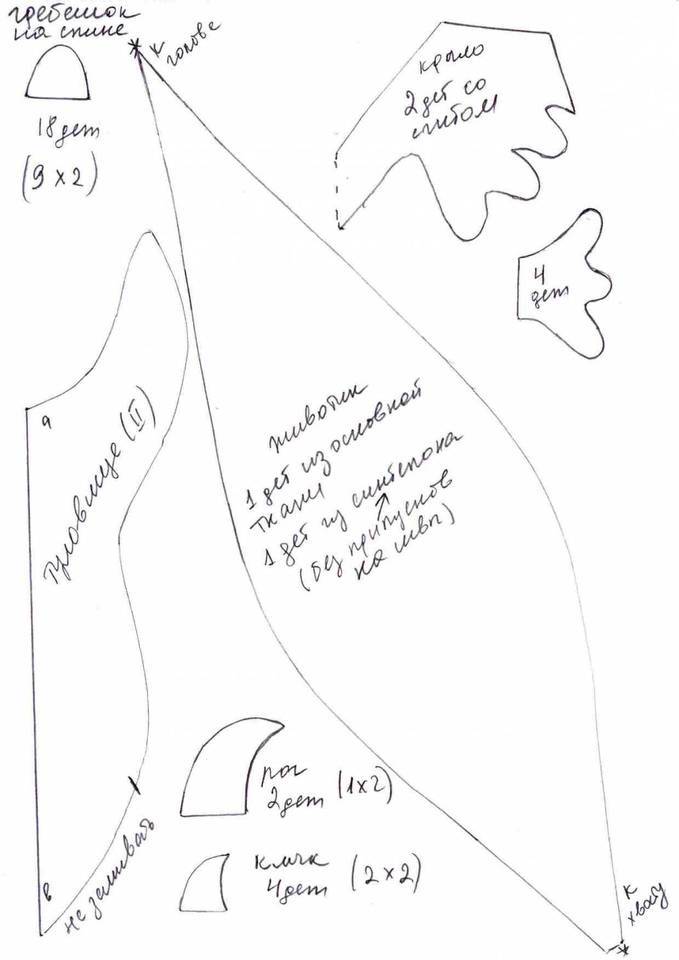 гребешок
на спине
18 дет
(9 x 2)
*
к
голове
крыло
2 дет со
сгибом
4
дет
а
туловище (II)
в
не зашивать
животик
1 дет из основной
ткани
1 дет из синтепона
(без припусков
на швы)
рог
2 дет (1x2)
клык
4 дет (2x2)
к
хвосту
*